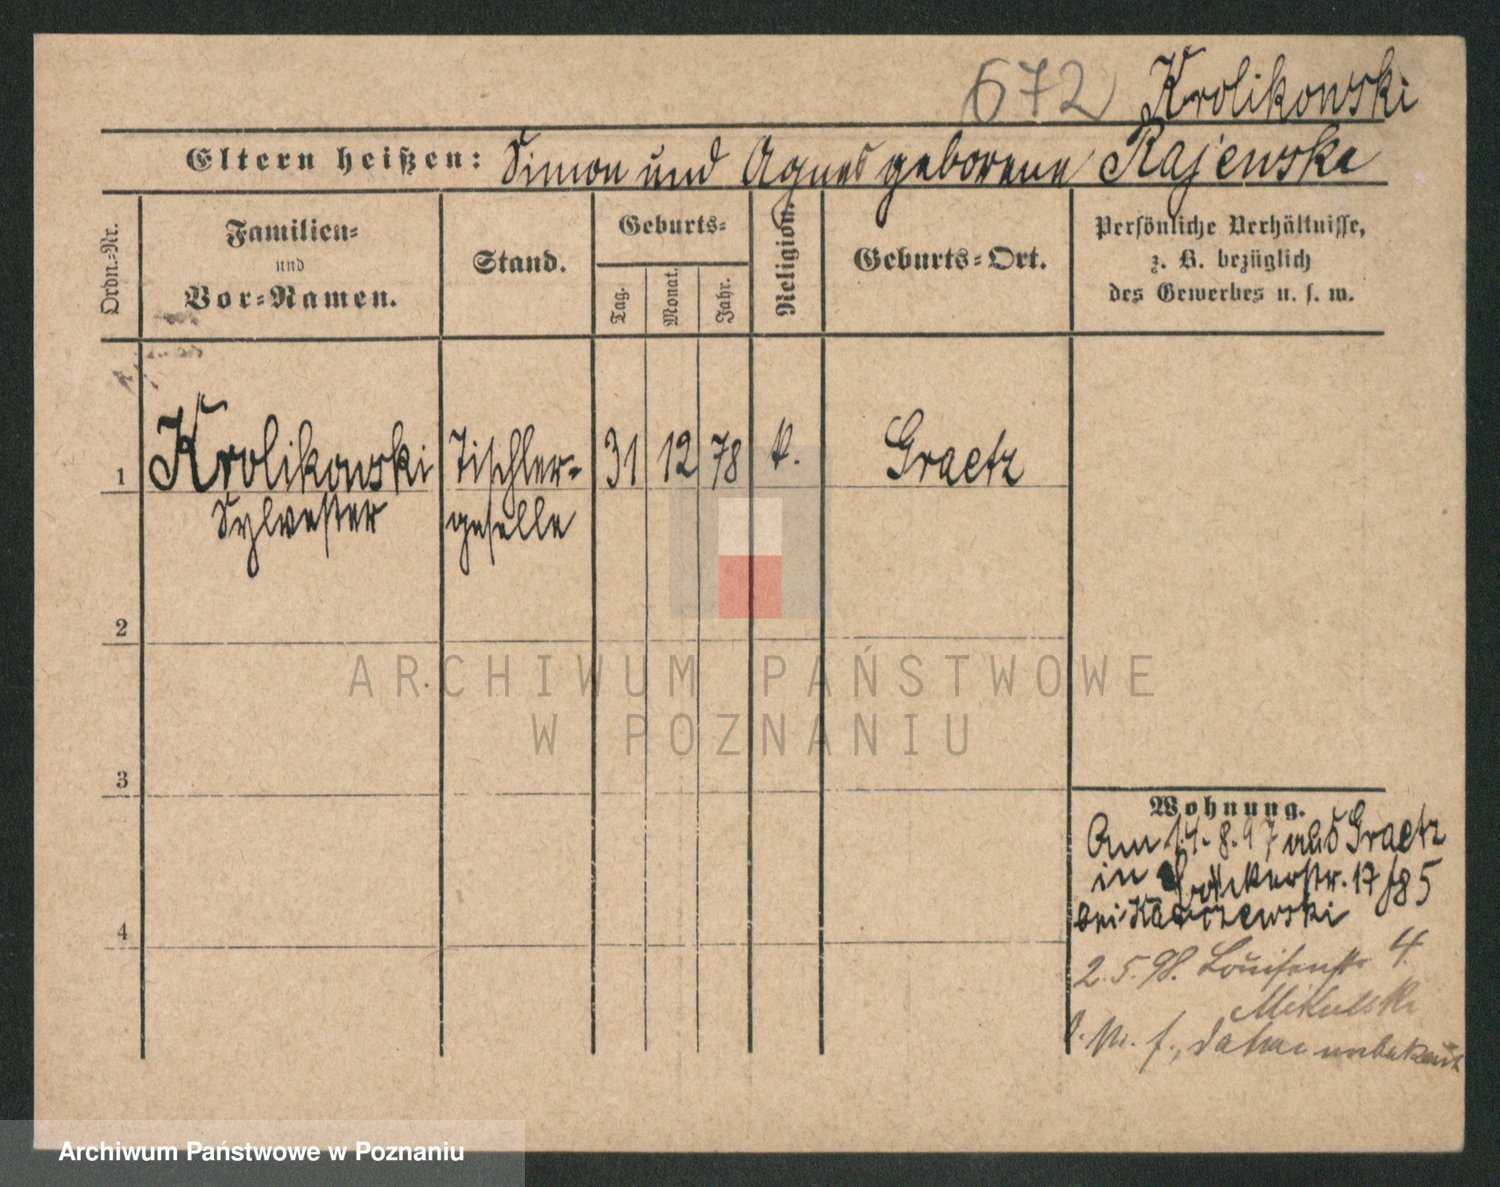 672 Krolikowski
Eltern heißen: Simon und Agnes geborene Rajewska
Ordn.-Nr.
Familien-
und
Vor-Namen.
Stand.
Geburts-
Tag.
Monat.
Jahr.
Religion.
Geburts-Ort.
Persönliche Verhältnisse,
z. B. bezüglich
des Gewerbes u. s. w.
1 Krolikowski Tischler- 31 12 78 k. Graetz
Sylvester geselle
2
3
4
ARCHIWUM PAŃSTWOWE
W POZNANIU
Wohnung.
Am 14.8.97 aus Graetz
in 17
bei
2.5.98. Louisenstr 4
Mikulski
datum unbekannt
Archiwum Państwowe w Poznaniu